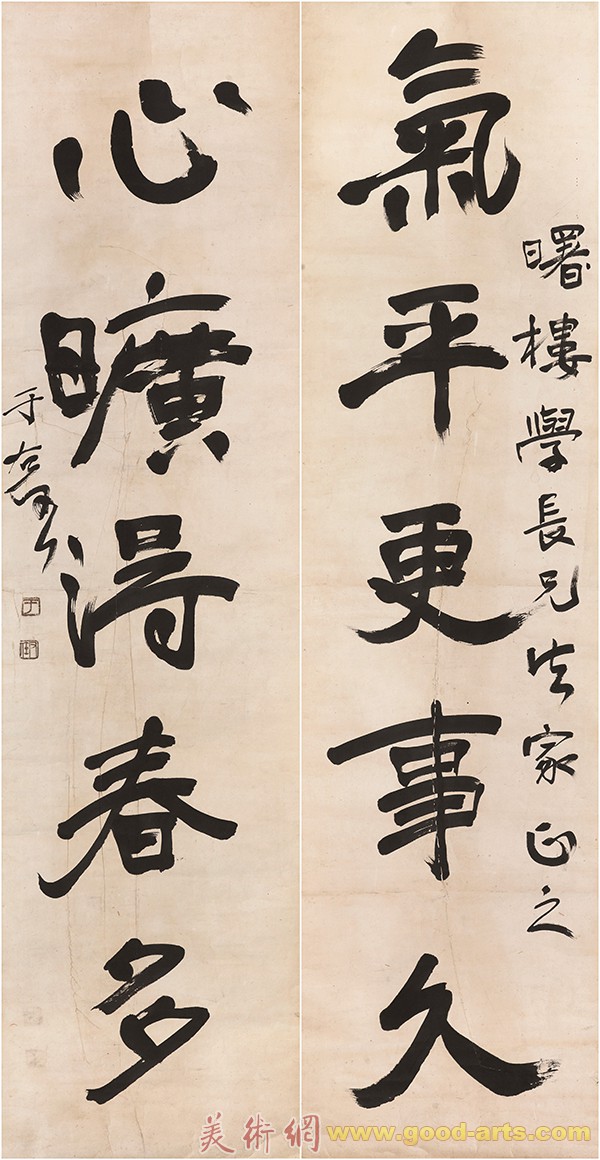 曙樓學長兄法家正之
氣平更事久
心曠得春多
于右任
美術網 www.good-arts.com